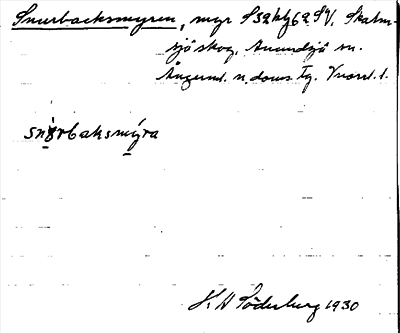 Snurbacksmyren, myr S32h1g62SV. Skalm-
sjö skog, Anundsjö sn.
Ångerml. n. doms Tg. Vnorrl. l.
snørbaksmýra
K H Söderberg 1930